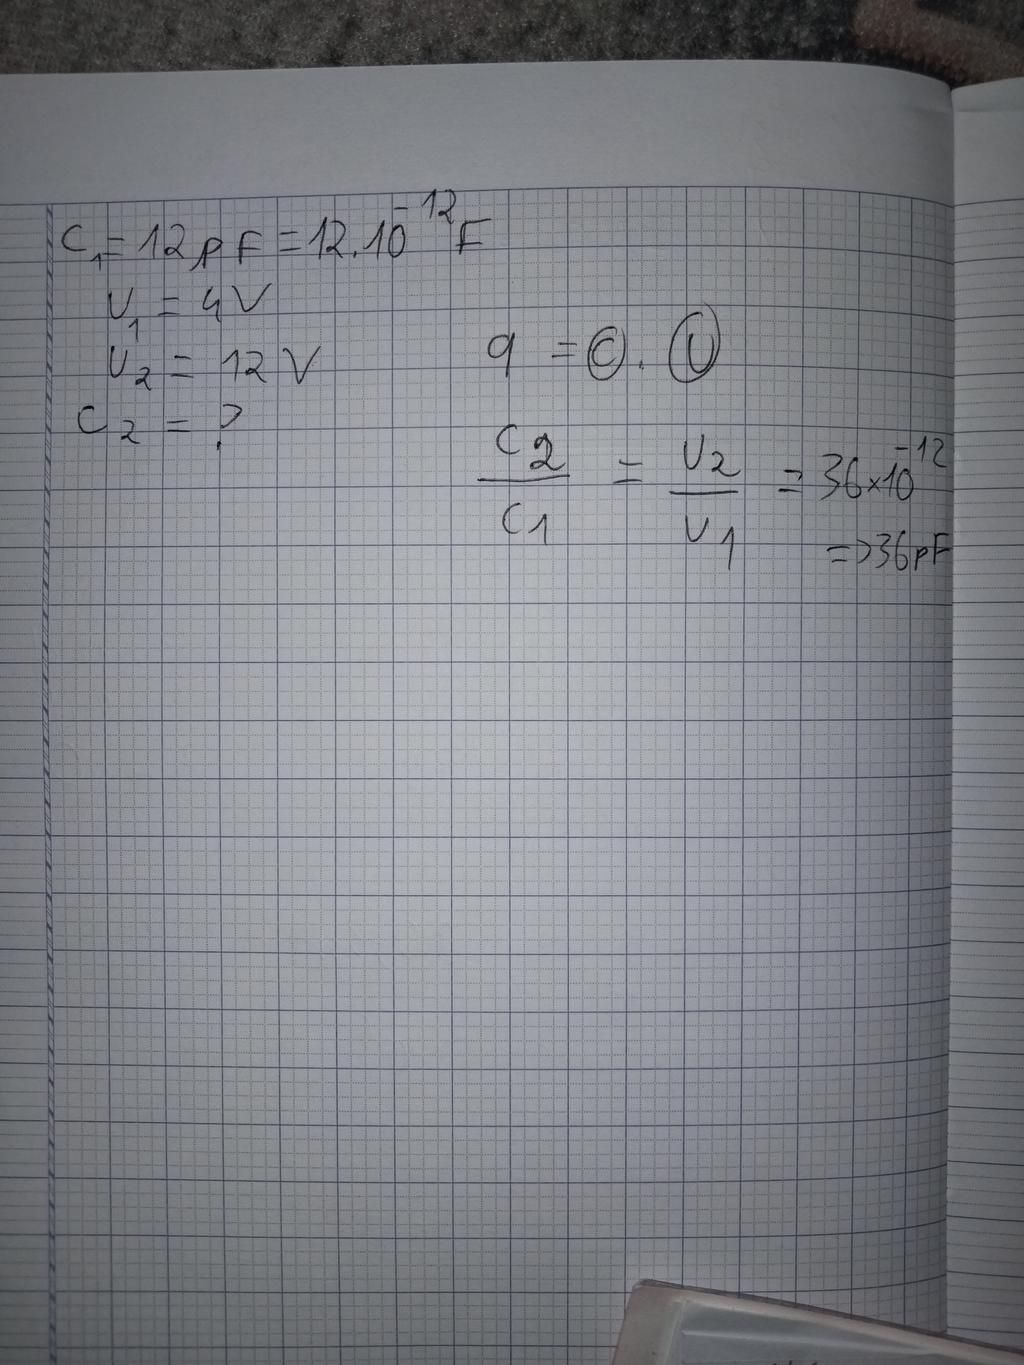 C₁ = 12 pF = 12.10⁻¹² F
U₁ = 4V
U₂ = 12 V
C₂ = ?
q = C . U
C2/C1 = U2/U1 = 36×10⁻¹²
=>36pF